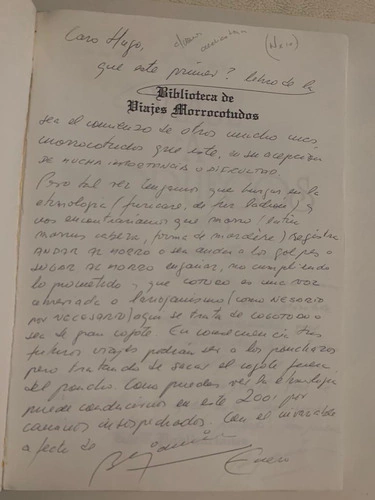 Caro Hugo,
que este primer? libro de la
Biblioteca de
Viajes Morrocotudos
sea el comienzo de otros mucho mas
morrocotudos que este, en su acepcion
de MUCHA IMPORTANCIA o DIFICULTAD.
Pero tal vez tengamos que hurgar en la
etimologia (furicare, de fur ladron) y
nos encontrariamos que morro (latin
cabeza, forma de ) registra
ANDAR AL MORRO o sea andar a los golpes o
JUGAR AL MORRO engañar, no cumpliendo
lo prometido y que COTUDO es una voz
(como NEGOCIO
por NECESARIO) aqui se trata de COGOTUDO o
sea de gran cogote. En consecuencia tus
futuros viajes podran ser a los ponchazos
pero tratando de sacar el cogote fuera
del poncho. Como puedes ver la etimologia
puede conducirnos en este 2001 por
caminos insospechados. Con el invariable
afecto de
Enero